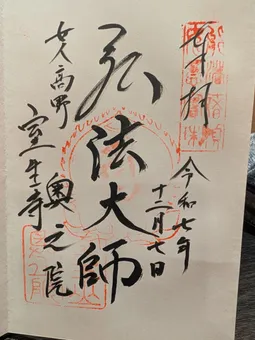 奉拝
令和七年
十二月七日
弘法大師
奥之院
女人高野
室生寺